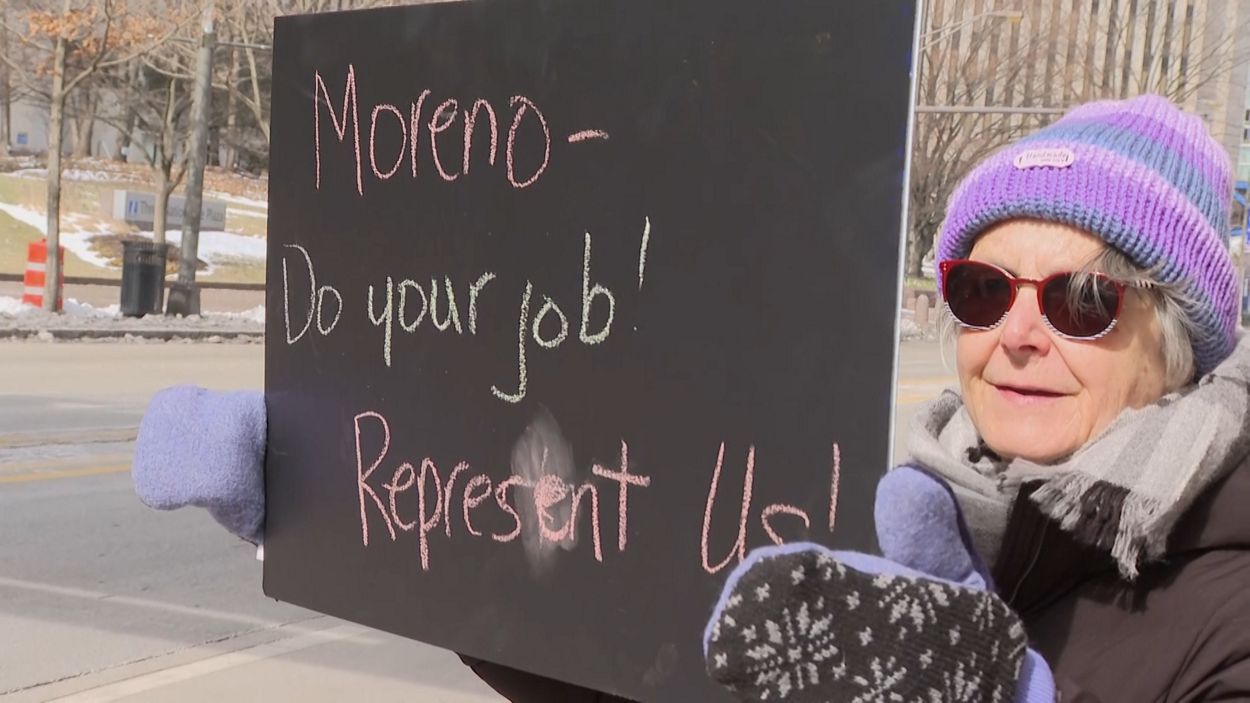 Moreno -
Do your job!
Represent Us!
Handmade
Plaza